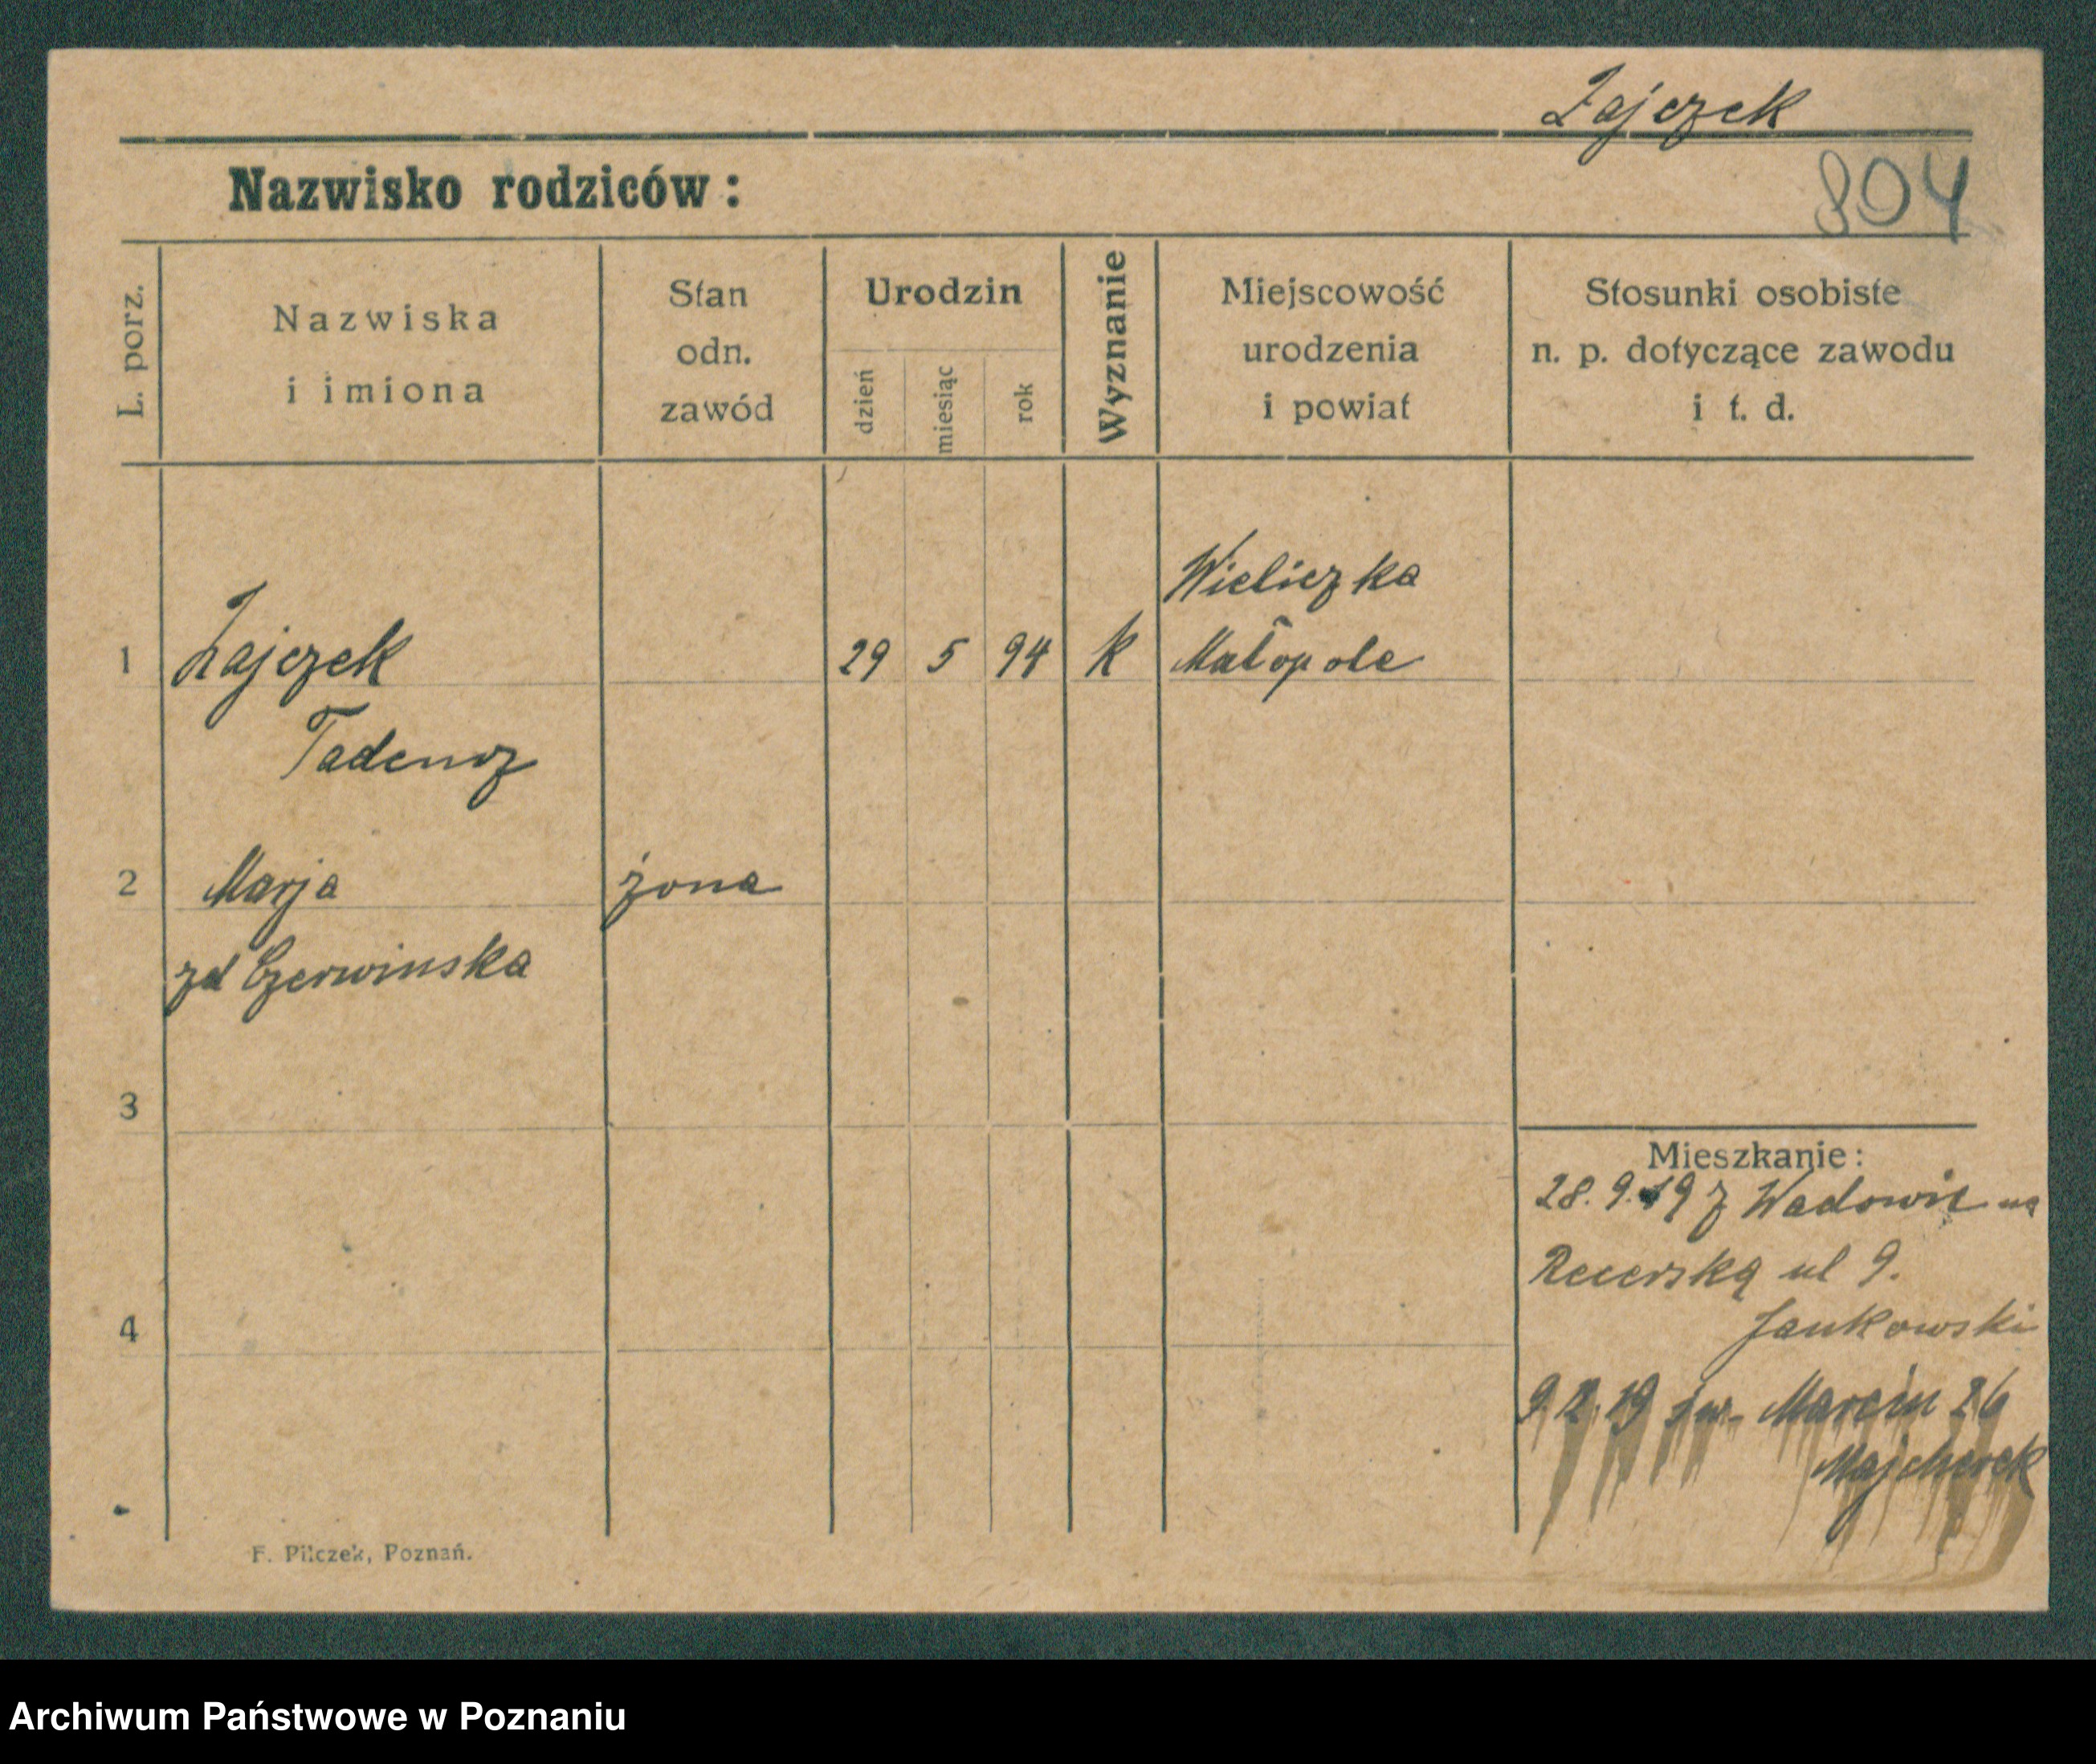 Zajczek
Nazwisko rodziców:
804
L. porz.
Nazwiska
i imiona
Stan
odn.
zawód
Urodzin
dzień
miesiąc
rok
Wyznanie
Miejscowość
urodzenia
i powiat
Stosunki osobiste
n. p. dotyczące zawodu
i t. d.
Wieliczka
1 Zajczek 29 5 94 k Małopole
Tadeusz
2 Marja żona
zd Czerwinska
3
Mieszkanie:
28. 9. 19 z Wadowic na
ul 9.
4
Jankowski
9. 12. 19 św. Marcin 26
Majcherek
F. Pilczek, Poznań.
Archiwum Państwowe w Poznaniu